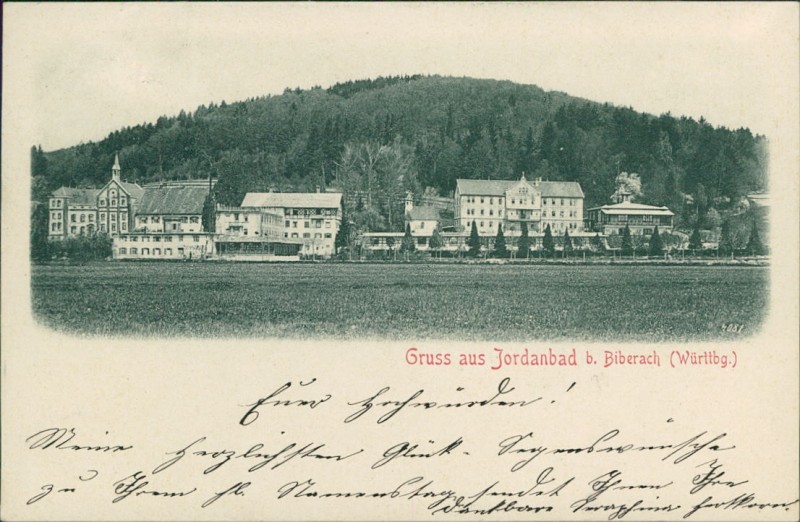 4051
Gruss aus Jordanbad b. Biberach (Württbg.)
Euer Hochwürden!
Meine Herzlichsten Glück- Segenswünsche
zu Ihrem hl. Namenstag sendet Ihnen Ihre
dankbare Seraphina